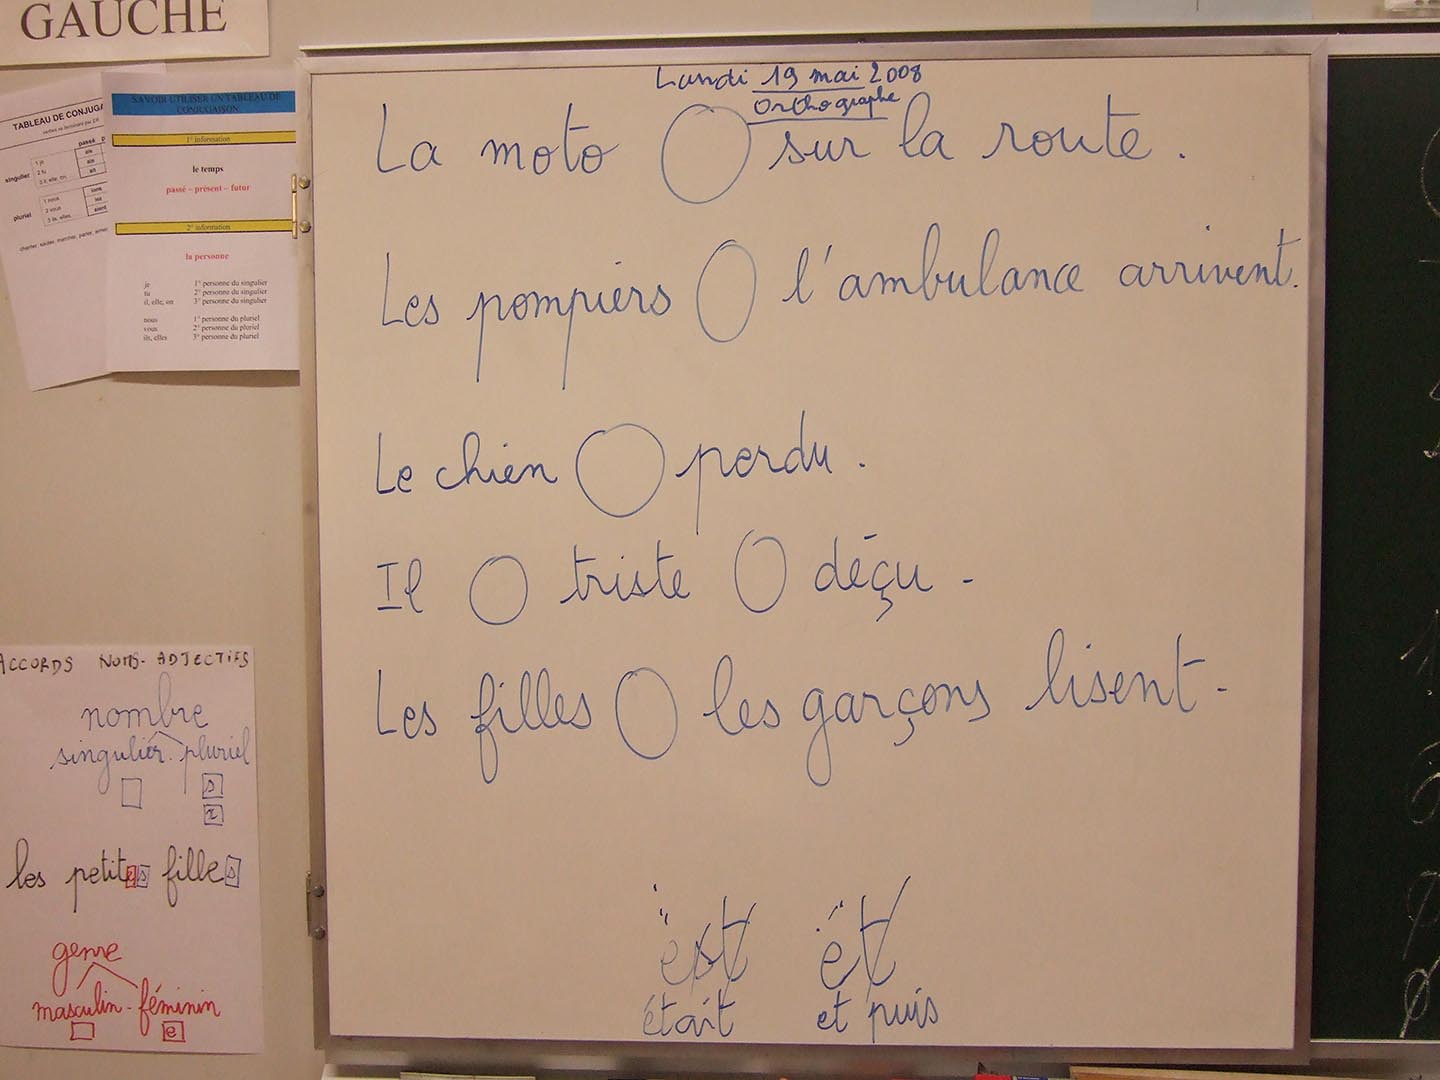 GAUCHE
TABLEAU DE CONJUGA
verbes se terminant par ER
passé
singulier
1 je
ais
2 tu
ais
3 il, elle, on
ait
pluriel
1 nous
ions
2 vous
iez
3 ils, elles,
aient
chanter, sauter, marcher, parler, aimer
SAVOIR UTILISER UN TABLEAU DE
CONJUGAISON
1° information
le temps
passé – présent – futur
2° information
la personne
je 1° personne du singulier
tu 2° personne du singulier
il, elle, on 3° personne du singulier
nous 1° personne du pluriel
vous 2° personne du pluriel
ils, elles 3° personne du pluriel
Lundi 19 mai 2008
Orthographe
La moto sur la route.
Les pompiers l'ambulance arrivent.
Le chien perdu.
Il triste déçu.
Les filles les garçons lisent.
est et
était et puis
ACCORDS NOMS-ADJECTIFS
nombre
singulier - pluriel
s
x
les petites filles
genre
masculin - féminin
e